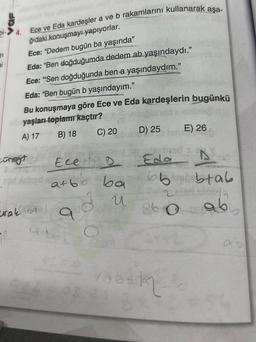 4. Ece ve Eda kardeşler a ve b rakamlarını kullanarak aşa-
ğıdaki konuşmayı yapıyorlar.
Ece: "Dedem bugün ba yaşında"
Eda: "Ben doğduğumda dedem ab yaşındaydı."
Ece: "Sen doğduğunda ben a yaşındaydım."
Eda: "Ben bugün b yaşındayım."
Bu konuşmaya göre Ece ve Eda kardeşlerin bugünkü
yaşları toplamı kaçtır?
A) 17 B) 18 C) 20 D) 25 E) 26
Ece D Eda D
a+b ba b b+ab
a 0 ab